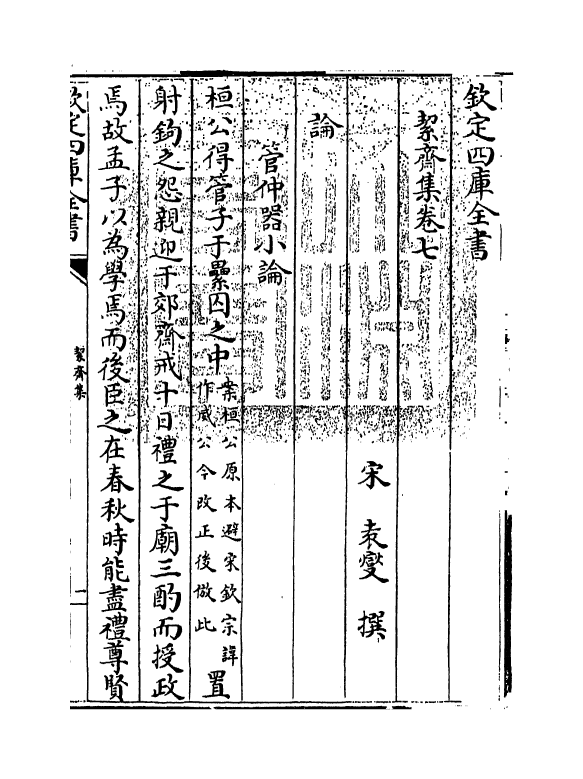 欽定四庫全書
絜齋集卷七
宋 袁燮 撰
論
管仲器小論
桓公得管子于纍囚之中案桓公原本避宋欽宗諱作威公今改正後倣此置
射鉤之怨親迎于郊齊戒十日禮之于廟三酌而授政
焉故孟子以為學焉而後臣之在春秋時能盡禮尊賢
欽定四庫全書
絜齋集
一